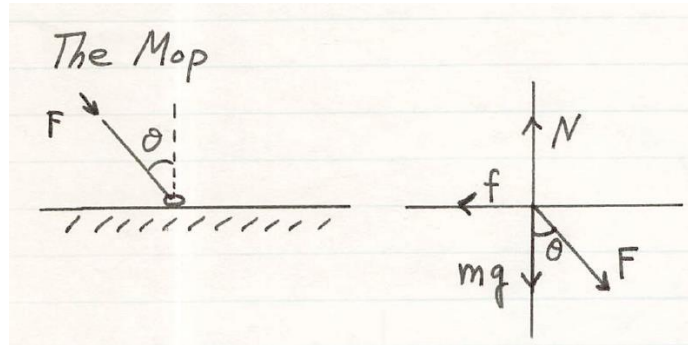 The Mop
F
θ
N
f
θ
F
mg